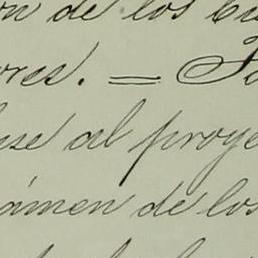 on de los cu
ores. = Fa
use al proye
ámen de los